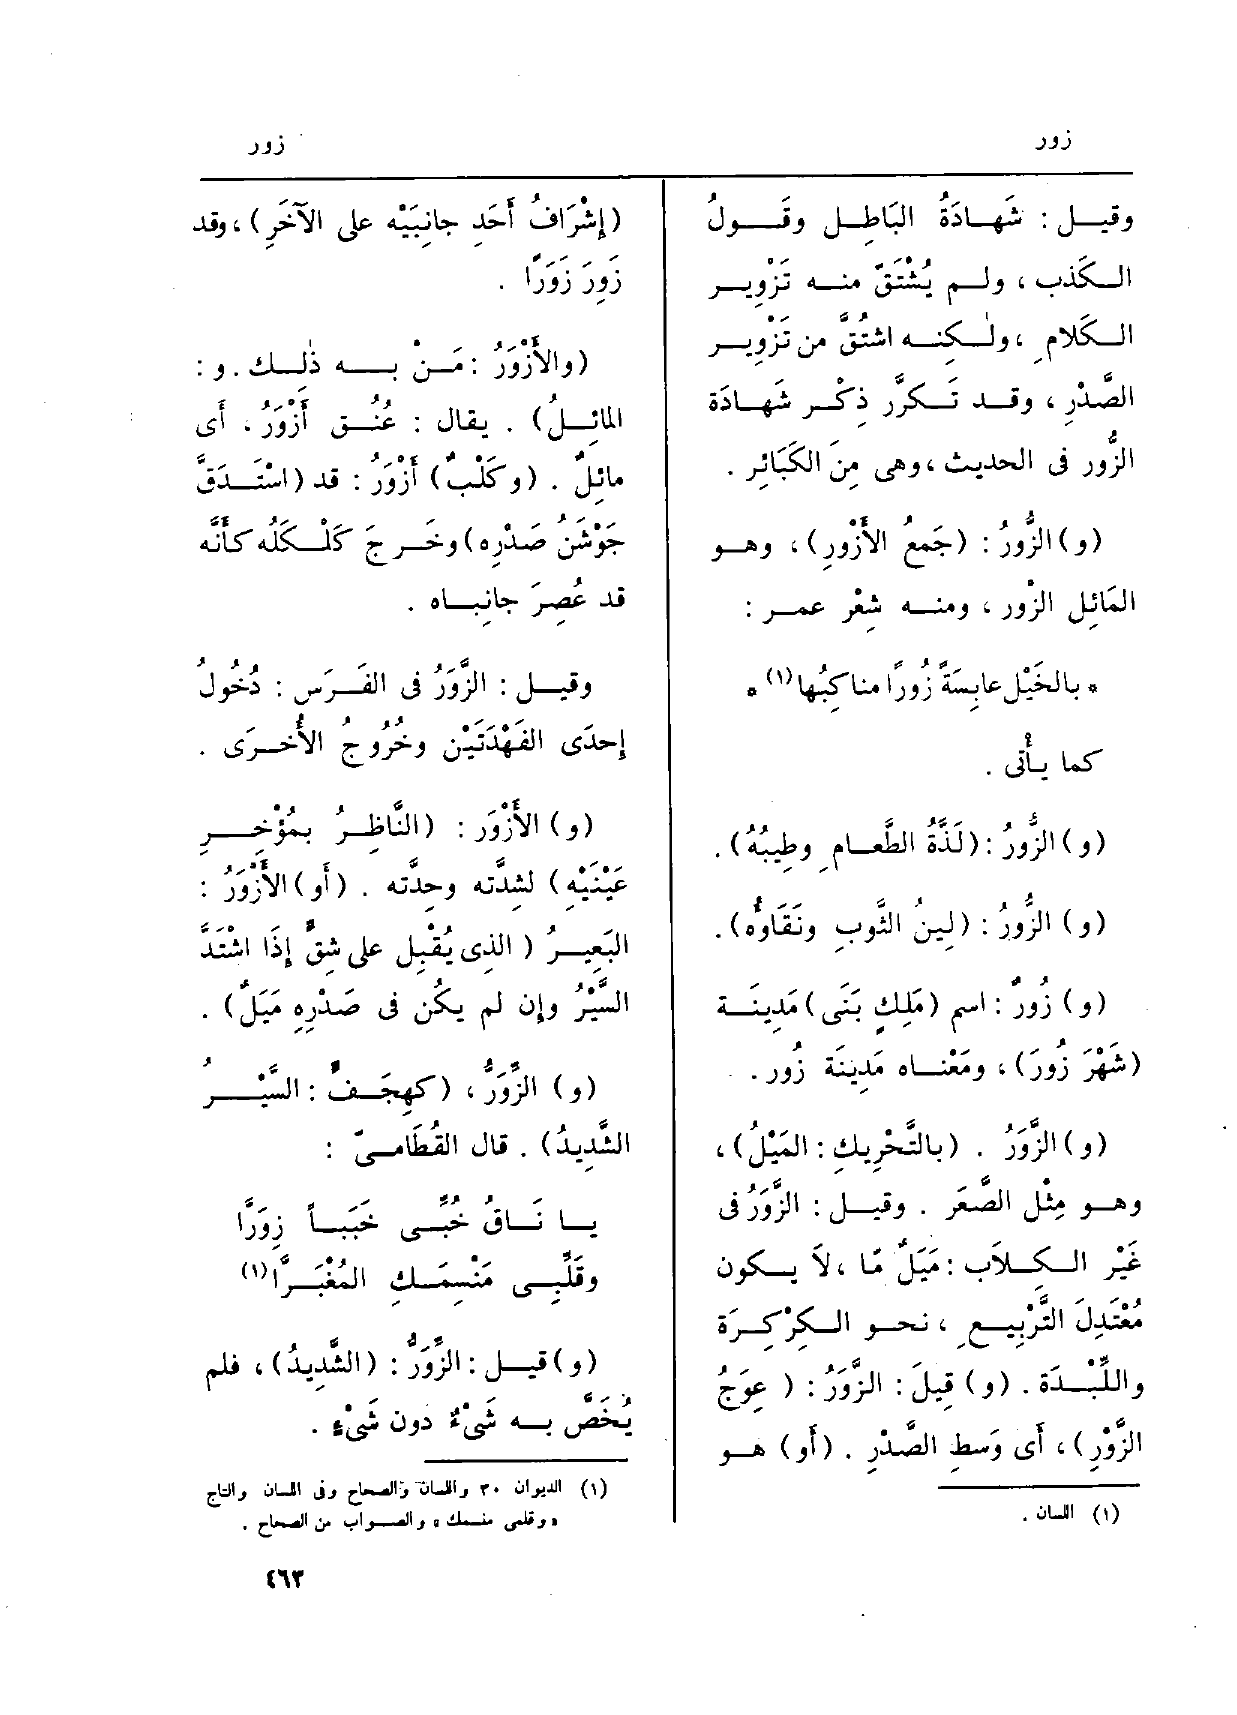 زور
زور
وقيــل : شَهــادَةُ البَاطِــل وقَــــولُ
الــكَذِب ، ولــم يُشْتَقَّ منــه تَزْوِيــر
الــكَلامِ ، ولٰــكِنــه اشتُقَّ من تَزْوِيــر
الصَّدْرِ ، وقــد تَــكرَّر ذِكْــر شَهــادَة
الزُّور فى الحديث ، وهى مِنَ الكَبَائر .
(و) الزُّورُ : (جَمعُ الأَزْورِ) ، وهــو
المَائِل الزَّور ، ومنــه شِعْر عمــر :
* بالخَيْل عابِسَةً زُورًا مناكِبُها (١) *
كما يــأْتى .
(و) الزُّورُ : (لَذَّةُ الطَّعــامِ وطِيبُهُ) .
(و) الزُّورُ : (لِينُ الثَّوبِ ونَقَاؤه) .
(و) زُورٌ : اسم (مَلِكٍ بَنَى) مَدِينــة
(شَهْرَ زُورَ) ، ومَعْنــاه مَدِينَة زُور .
(و) الزَّوَرُ . (بالتَّحْرِيك : المَيْلُ) ،
وهــو مِثْل الصَّعَر . وقيــل : الزَّوَرُ فى
غَيْر الــكــلاب : مَيَلٌ مّا ، لاَ يــكون
مُعْتَدِلَ التَّرْبِيــعِ ، نحــو الــكِرْكِــرَة
واللِّبْــدَة . (و) قِيلَ : الزَّوَرُ : (عِوَجُ
الزَّوْرِ) ، أَى وَسطِ الصَّدْرِ . (أَو) هــو
(١) اللسان .
(إِشْرَافُ أَحَدِ جانِبَيْه على الآخَرِ) ، وقد
زَوِرَ زَوَرًا .
(والأَزْوَرُ : مَــنْ بــــه ذٰلــك . و :
المائِــلُ) . يقال : عُنُــق أَزْوَرُ ، أَى
مائِلٌ . (وكَلْبٌ) أَزْوَرُ : قد (اسْتَــدَقَّ
جَوْشَنُ صَدْرِه) وخَــرجَ كَلْــكَلُه كأَنَّه
قد عُصِرَ جانِبــاه .
وقيــل : الزَّوَرُ فى الفَــرَس : دُخُولُ
إِحدَى الفَهْدَتَيْن وخُرُوجُ الأُخــرَى .
(و) الأَزْوَر : (النَّاظِــرُ بمُؤْخِــــر
عَيْنَيْه) لشدَّته وحِدَّته . (أَو) الأَزْوَرُ :
البَعِيــرُ (الذى يُقْبِل على شِقٍّ إِذَا اشتَدَّ
السَّيْرُ وإِن لم يكُن فى صَدْرِه مَيَلٌ) .
(و) الزِّوَرُّ ، (كهِجَــفٍّ : السَّيْــــرُ
الشَّدِيدُ) . قال القُطَامــىّ :
يــا نَــاقُ خُبِّــى خَبَبــاً زِوَرَّا
وقَلِّبــى مَنْسِمَــك المُغْبَــرَّا (١)
(و) قيــل : الزِّوَرُّ : (الشَّدِيدُ) ، فلم
يُخَصّ بــه شَىْءٌ دون شَىْءٍ .
(١) الديوان ٣٠ واللسان والصحاح وفى اللسان والتاج
« وقلمى منسمك » والصــواب من الصحاح .
٤٦٣